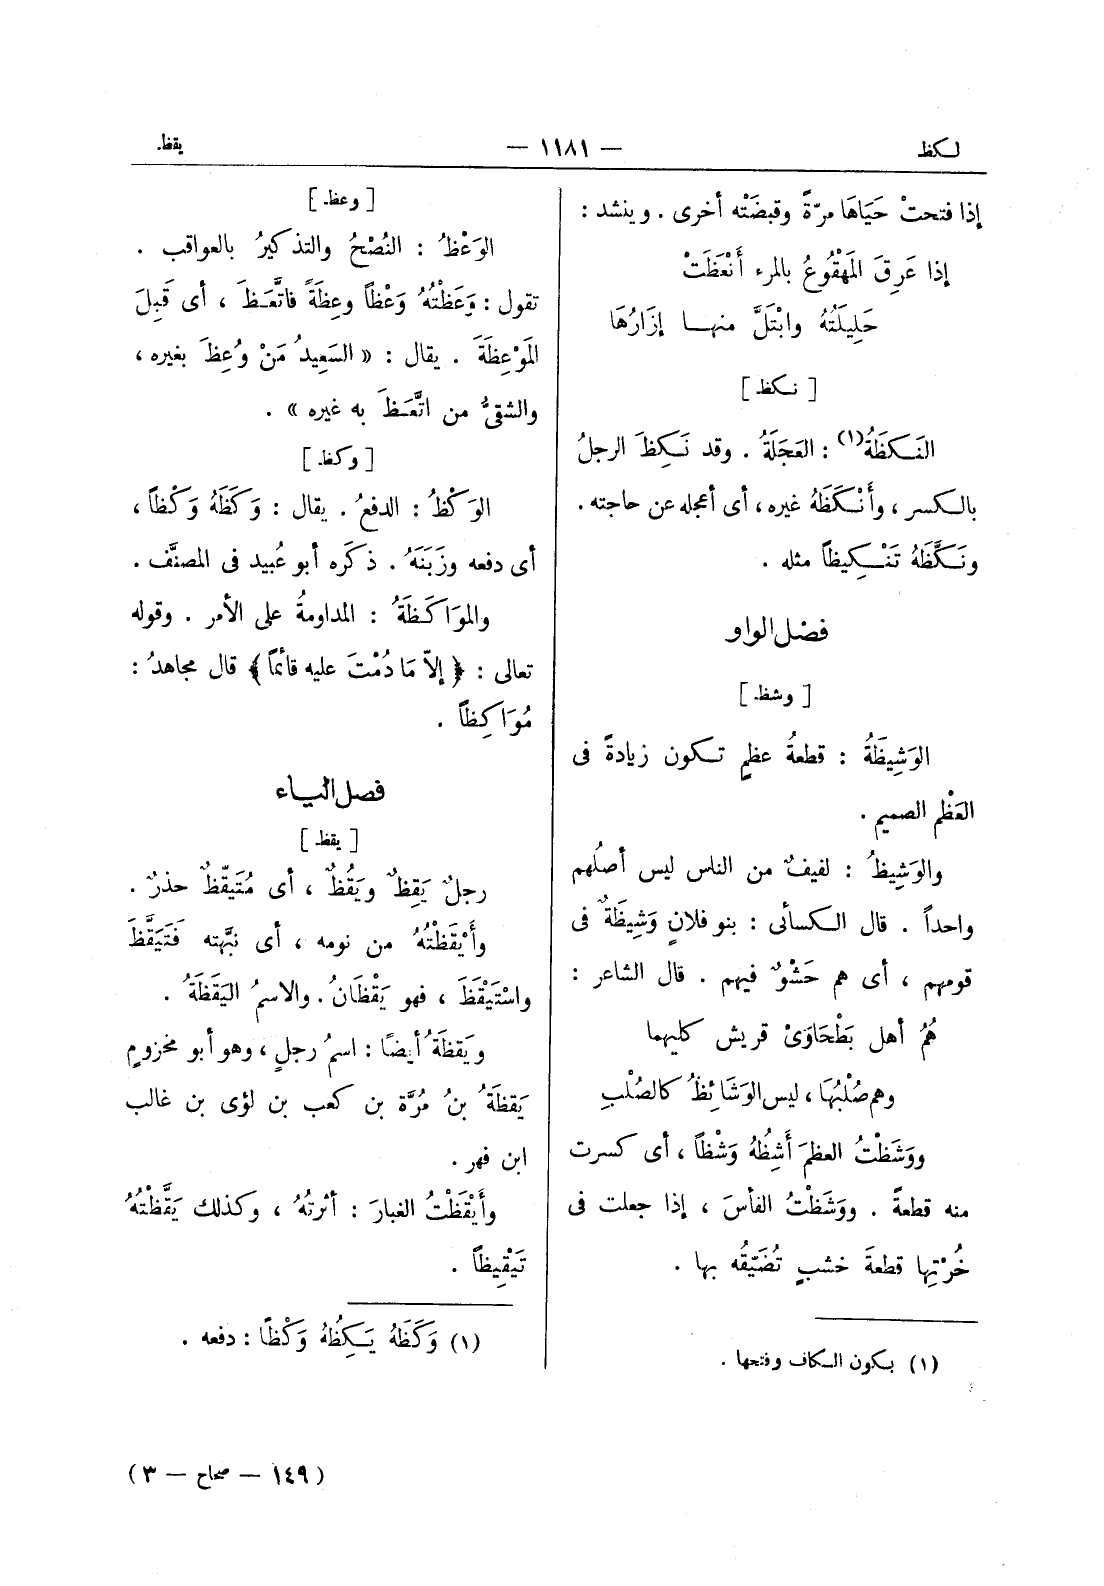 لكظ — ١١٨١ — يقظ
إذا فتحتْ حَيَاهَا مرّةً وقبضَتْه أخرى . وينشد :
إذا عَرِقَ المَهْقُوعُ بالمرء أَنْعَظَتْ
حَلِيلَتُهُ وابْتَلَّ منها إزَارُهَا
[ نكظ ]
النَكظَةُ (١) : العَجَلَةُ . وقد نَكِظَ الرجلُ
بالكسر ، وأَنْكَظَهُ غيره ، أى أعجله عن حاجته .
ونَكَّظَهُ تَنْكِيظاً مثله .
فصل الواو
[ وشظ ]
الوَشِيظَةُ : قطعةُ عظمٍ تكون زيادةً فى
العَظْم الصميم .
والوَشِيظُ : لفيفٌ من الناس ليس أصلُهم
واحداً . قال الكسائى : بنو فلانٍ وَشِيظَةٌ فى
قومهم ، أى هم حَشْوٌ فيهم . قال الشاعر :
هُمُ أهل بَطْحَاوَىْ قريش كليهما
وهم صُلْبُهَا ، ليس الوَشَائِظُ كالصُلْبِ
ووَشَظْتُ العظمَ أَشِظُهُ وَشْظاً ، أى كسرت
منه قطعةً . ووَشَظْتُ الفأسَ ، إذا جعلت فى
خُرْتِها قطعةَ خشبٍ تُضَيِّقُه بها .
(١) بكون الكاف وفتحها .
[ وعظ ]
الوَعْظُ : النُصْحُ والتذكيرُ بالعواقب .
تقول : وَعَظْتُهُ وَعْظاً وعِظَةً فاتَّعَظَ ، أى قَبِلَ
المَوْعِظَةَ . يقال : « السَعِيدُ مَنْ وُعِظَ بغيره ،
والشقىُّ من اتَّعَظَ به غيره » .
[ وكظ ]
الوَكْظُ : الدفعُ . يقال : وَكَظَهُ وَكْظاً ،
أى دفعه وزَبَنَهُ . ذكَره أبو عُبيد فى المصنَّف .
والموَاكَظَةُ : المداومةُ على الأمر . وقوله
تعالى : ﴿ إلاّ مَا دُمْتَ عليه قائمًا ﴾ قال مجاهدُ :
مُوَاكِظاً .
فصل الياء
[ يقظ ]
رجلٌ يَقِظٌ ويَقُظٌ ، أى مُتَيَقِّظٌ حذرٌ .
وأَيْقَظْتُهُ من نومه ، أى نبَّهته فَتَيَقَّظَ
واسْتَيْقَظَ ، فهو يَقْظَانُ . والاسمُ اليَقَظَةُ .
ويَقظَةُ أيضًا : اسمُ رجلٍ ، وهو أبو مخزومٍ
يَقظَةُ بنُ مُرَّة بن كعب بن لؤى بن غالب
ابن فهر .
وأَيْقَظْتُ الغبارَ : أثرتُهُ ، وكذلك يَقَّظْتُهُ
تَيْقِيظاً .
(١) وَكَظَهُ يَكِظُهُ وَكْظًا : دفعه .
( ١٤٩ — صحاح — ٣ )